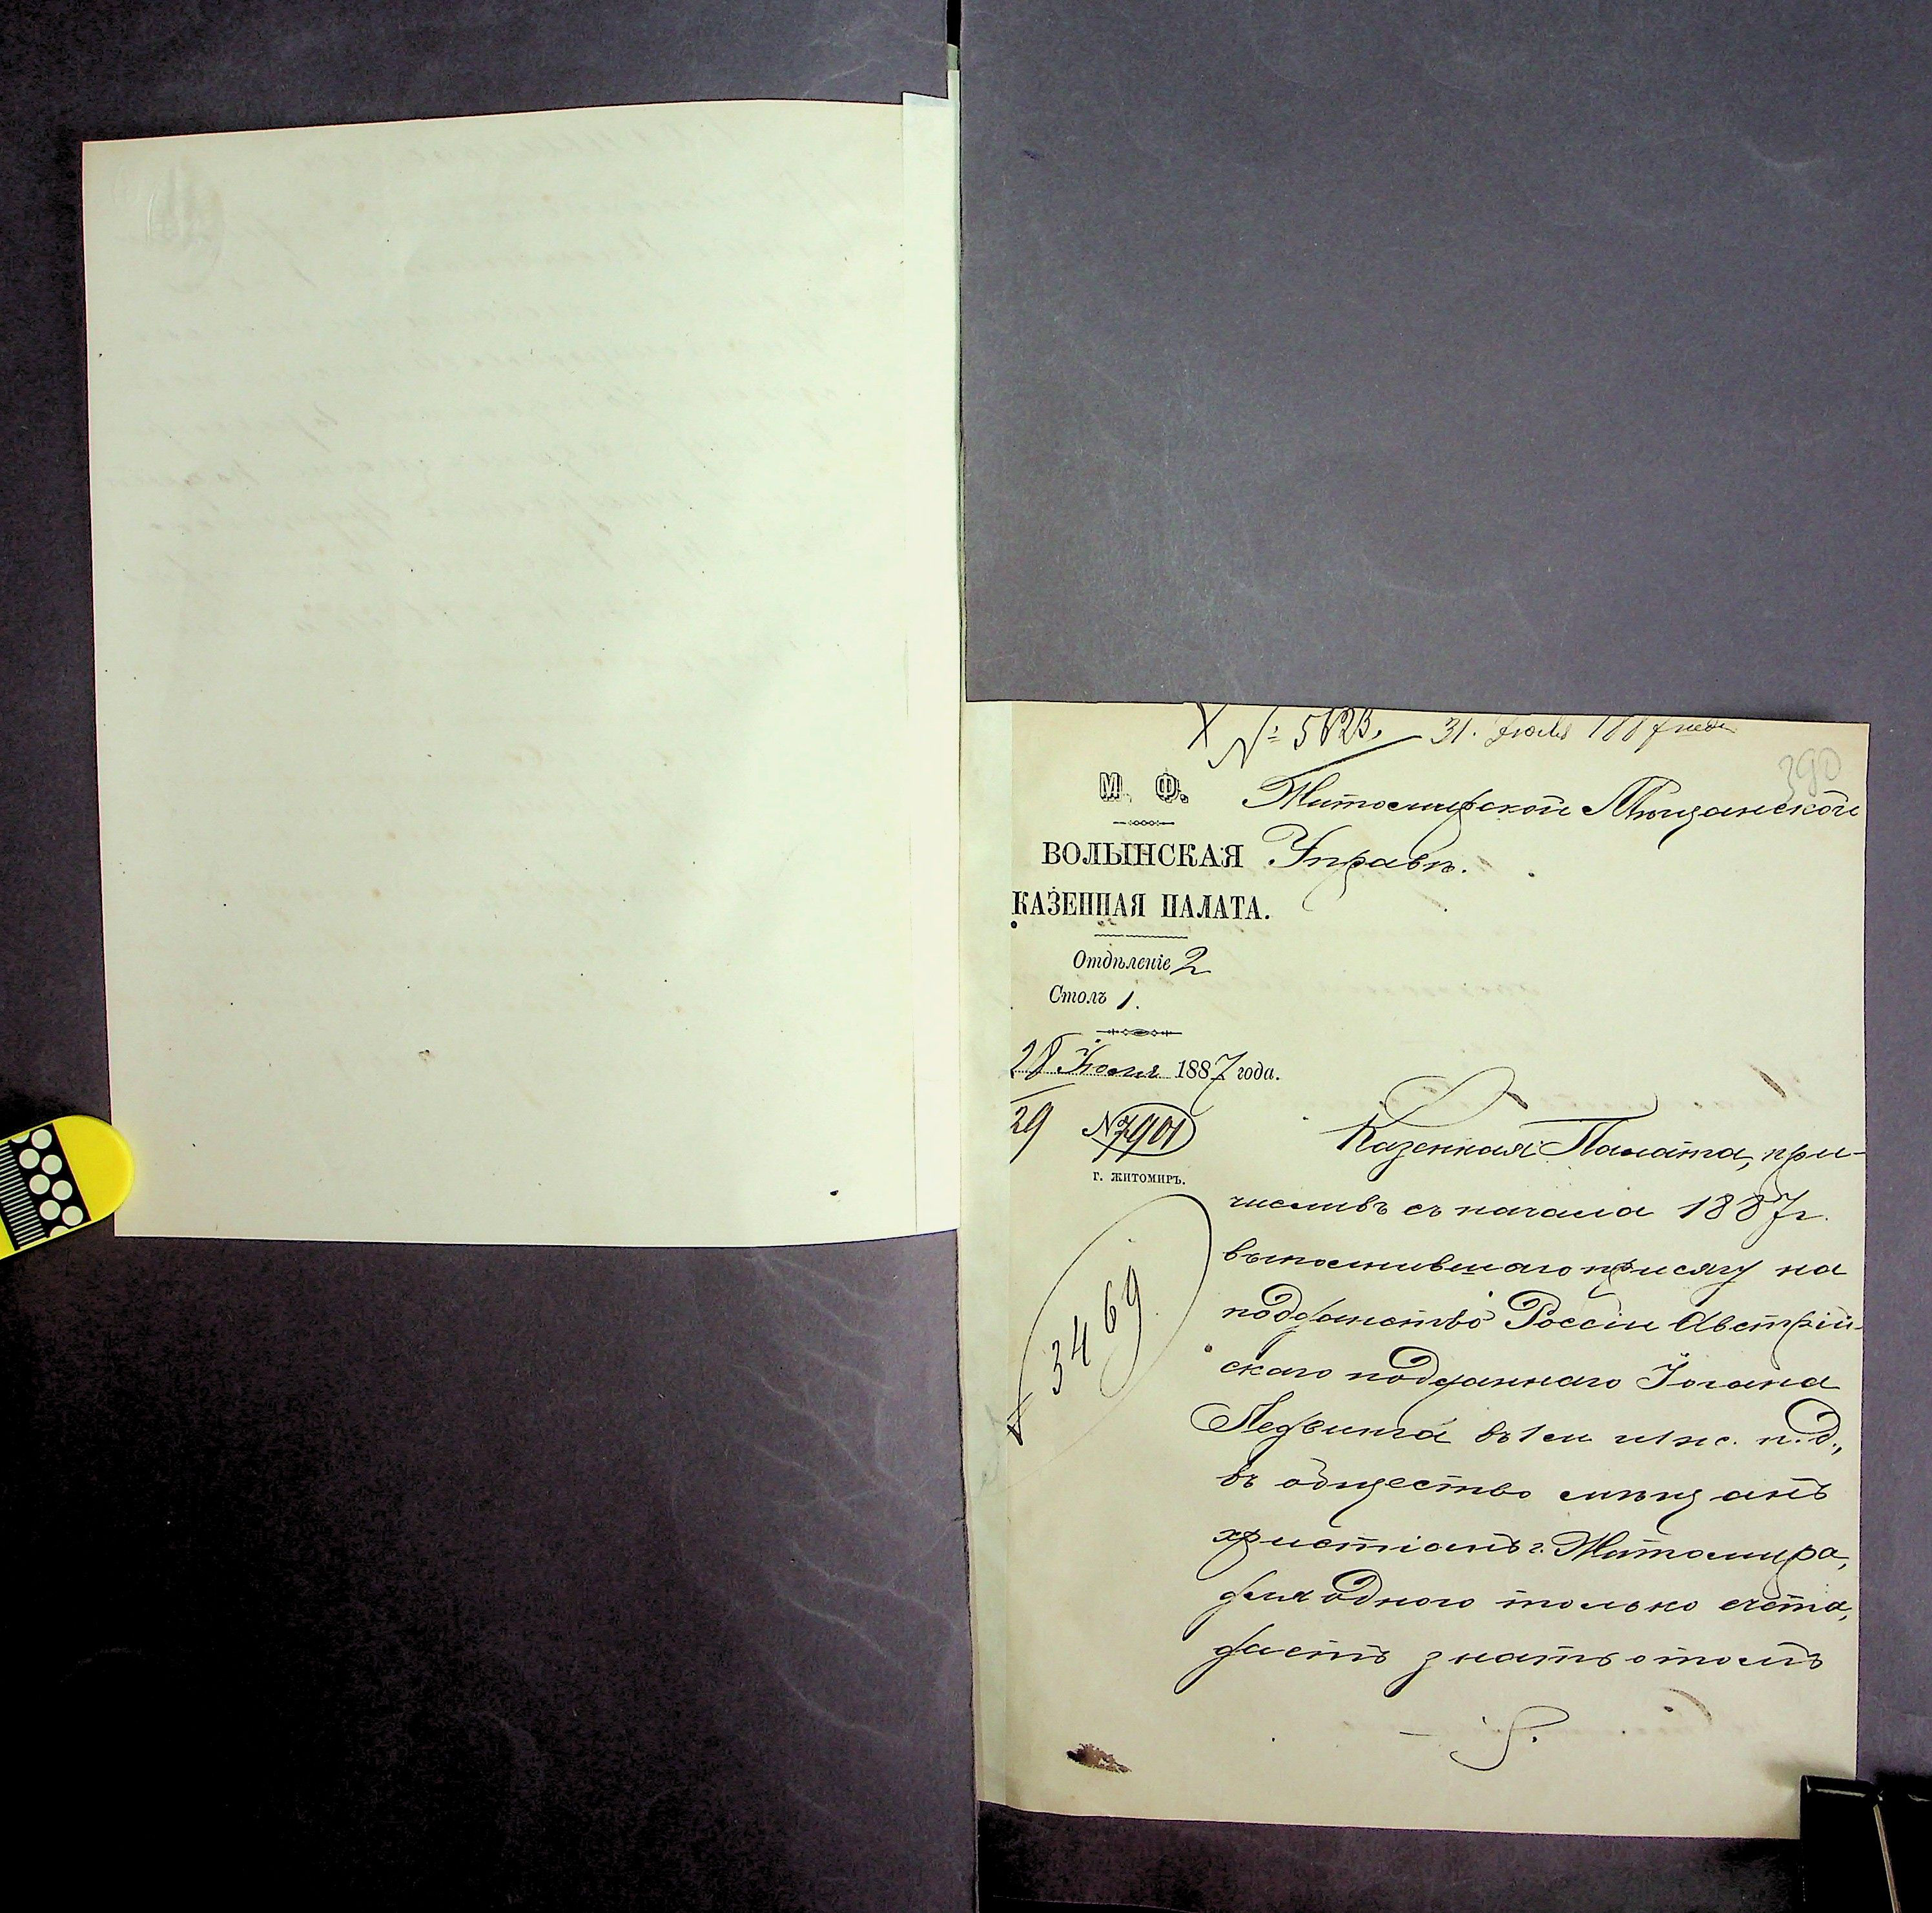 № 5823. 31. Июля 1887 года
390
М. Ф.
ВОЛЫНСКАЯ
КАЗЕННАЯ ПАЛАТА.
Отдѣленіе 2
Столъ 1.
28 Іюля 1887 года.
29
№ 7901
Г. ЖИТОМИРЪ.
3469
Житомирской Мѣщанской
Управѣ.
Казенная Палата, при-
числивъ съ начала 1887 г.
выполнившаго присягу на
подданство Россіи Австрій-
скаго подданнаго Іогана
Ледвина въ 1 м. и 1 ж. п. д.,
въ общество мѣщанъ
христіанъ г. Житомира,
для одного только счета,
даетъ знать о томъ